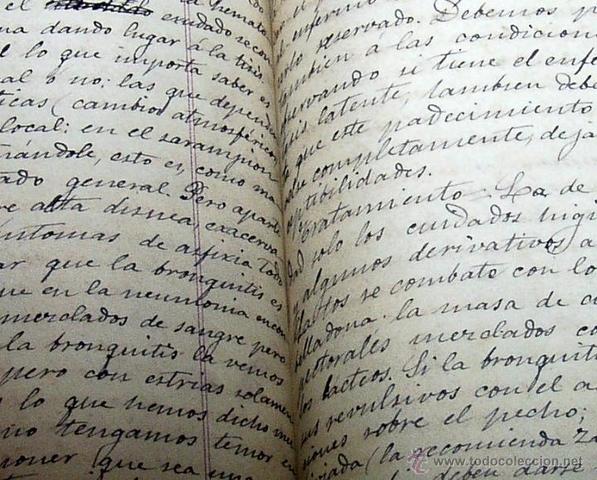 exudado recon
na dando lugar á la tisis.
el lo que importa saber es
al o no: las que dependen
ticas (cambios atmosféricos
local: en el sarampion
nándole, esto es, como ma
tado general Pero aparte
re alta disnea exacerva
ntomas de asfixia todo
ar que la bronquitis es
que en la neumonia encon
merclados de sangre pero
la bronquitis la vemos
pero con estrias solamen
lo que hemos dicho
no tengamos temor en
poner que sea una
el enfermo
reservado. Debemos
tambien á las condicion
servando si tiene el enfe
latente, tambien debe
que este padecimiento
completamente, deja
tibilidades.
Tratamiento. La de
solo los cuidados higi
algunos derivativos a
se combato con lo
belladona. la masa de
pectorales merclados co
los bacteos. Si la bronquit
revulsivos con el a
sobre el pecho;
(la recomienda Za
deben darse
www.todocoleccion.net